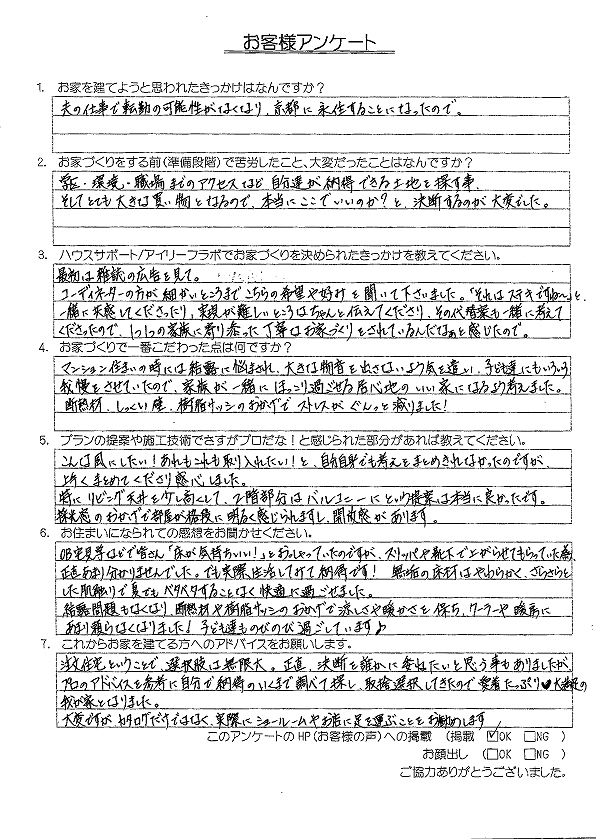 お客様アンケート
1. お家を建てようと思われたきっかけはなんですか？
夫の仕事で転勤の可能性がなくなり、京都に永住することになったので。
2. お家づくりをする前（準備段階）で苦労したこと、大変だったことはなんですか？
学区・環境・職場までのアクセスなど、自分達が納得できる土地を探す事、
そしてとても大きな買い物となるので、本当にここでいいのか？と、決断するのが大変でした。
3. ハウスサポート/アイリーフラボでお家づくりを決められたきっかけを教えてください。
最初は雑誌の広告を見て。
コーディネーターの方が細かいところまでこちらの希望や好みを聞いて下さいました。「それはステキですね〜」と
一緒に共感してくださったり、実現が難しいところはちゃんと伝えてくださり、その代替案も一緒に考えて
くださったので、1つ1つの家族に寄り添った丁寧なお家づくりをされているんだなぁと感じたので。
4. お家づくりで一番こだわった点は何ですか？
マンション住まいの時には結露に悩まされ、大きな物音を出さないよう気を遣い、子ども達にもいろいろ
我慢をさせていたので、家族が一緒にほっこり過ごせる居心地のいい家になるよう考えました。
断熱材、しっくい壁、樹脂サッシのおかげでストレスがぐんっと減りました！
5. プランの提案や施工技術でさすがプロだな！と感じられた部分があれば教えてください。
こんな風にしたい！あれもこれも取り入れたい！と、自分自身でも考えをまとめきれなかったのですが、
上手くまとめてくださり感心しました。
特にリビング天井を少し高くして、2階部分はバルコニーにという提案は本当に良かったです。
採光窓のおかげで部屋が格段に明るく感じられますし、開放感があります。
6. お住まいになられての感想をお聞かせください。
OB宅見学などで皆さん「床が気持ちいい！」とおっしゃっていたのですが、スリッパや靴下で上がらせてもらっていた為、
正直あまり分かりませんでした。でも実際生活してみて納得です！ 無垢の床材はやわらかく、さらさらと
した肌触りで夏でもベタベタすることなく快適に過ごせました。
結露問題もなくなり、断熱材や樹脂サッシのおかげで涼しさや暖かさを保ち、クーラーや暖房に
あまり頼らなくなりました！子ども達ものびのび過ごしています♪
7. これからお家を建てる方へのアドバイスをお願いします。
注文住宅ということで、選択肢は無限大。正直、決断を誰かに委ねたいと思う事もありましたが、
プロのアドバイスを参考に自分で納得のいくまで調べて探し、取捨選択してきたので愛着たっぷり♥大満足の
我が家となりました。
大変ですが、カタログだけではなく、実際にショールームやお店に足を運ぶことをお勧めします
このアンケートのHP（お客様の声）への掲載 （掲載 ☑OK □NG ）
お顔出し （□OK □NG ）
ご協力ありがとうございました。